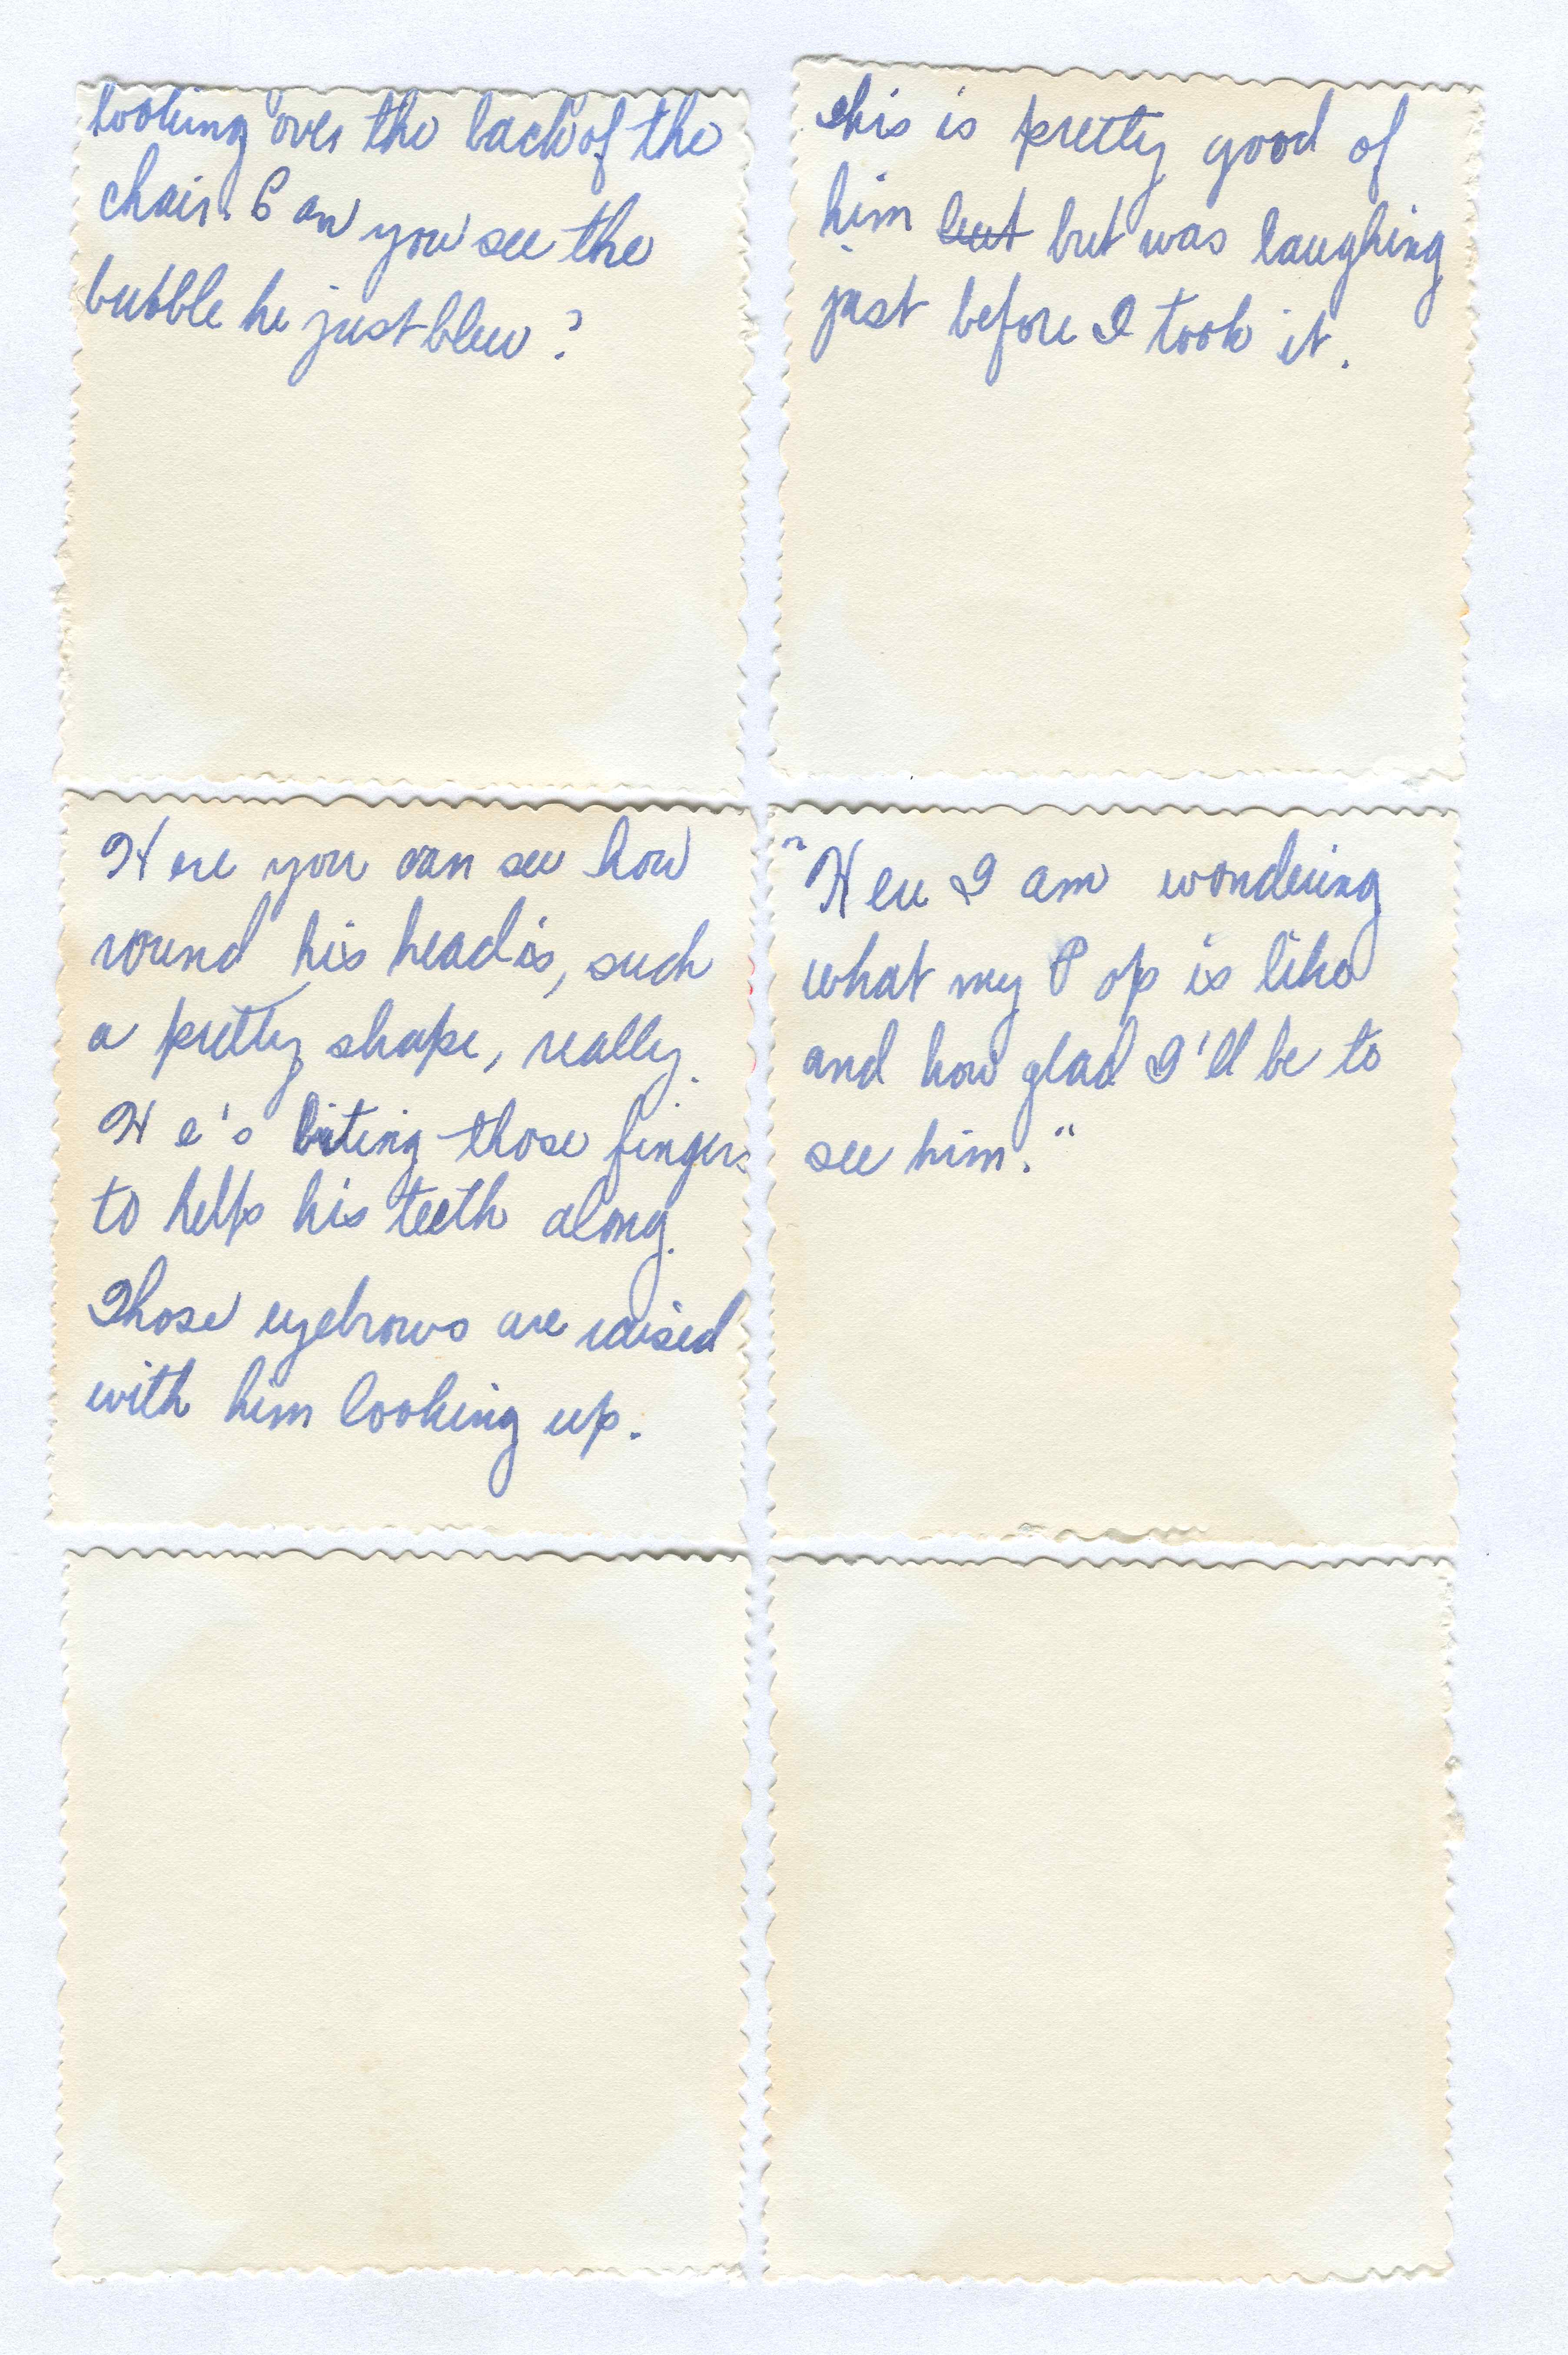 looking over the back of the
chair. Can you see the
bubble he just blew?
This is pretty good of
him but but was laughing
just before I took it.
Here you can see how
round his head is, such
a pretty shape, really.
He's biting those fingers
to help his teeth along.
Those eyebrows are raised
with him looking up.
"Here I am wondering
what my Pop is like
and how glad I'll be to
see him."